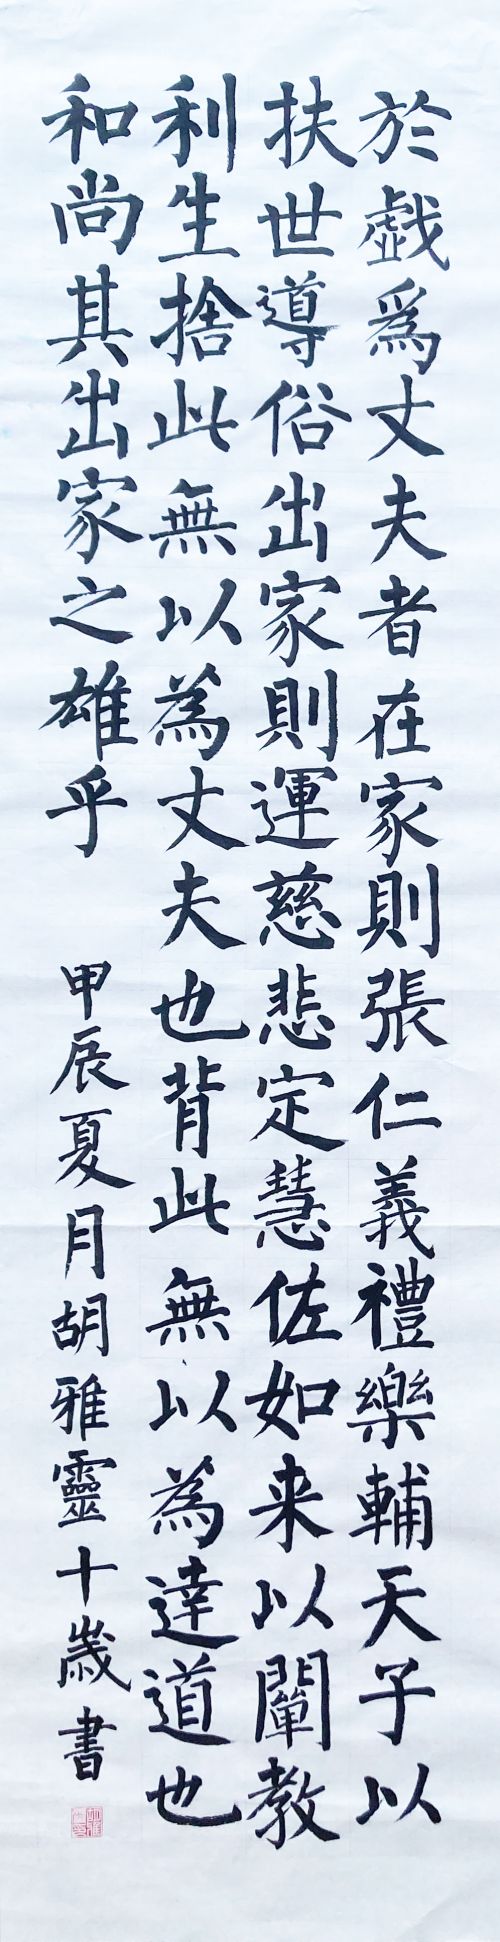 於戯爲丈夫者在家則張仁義禮樂輔天子以
扶世導俗出家則運慈悲定慧佐如来以闡教
利生捨此無以為丈夫也背此無以為達道也
和尚其出家之雄乎 甲辰夏月胡雅靈十歲書